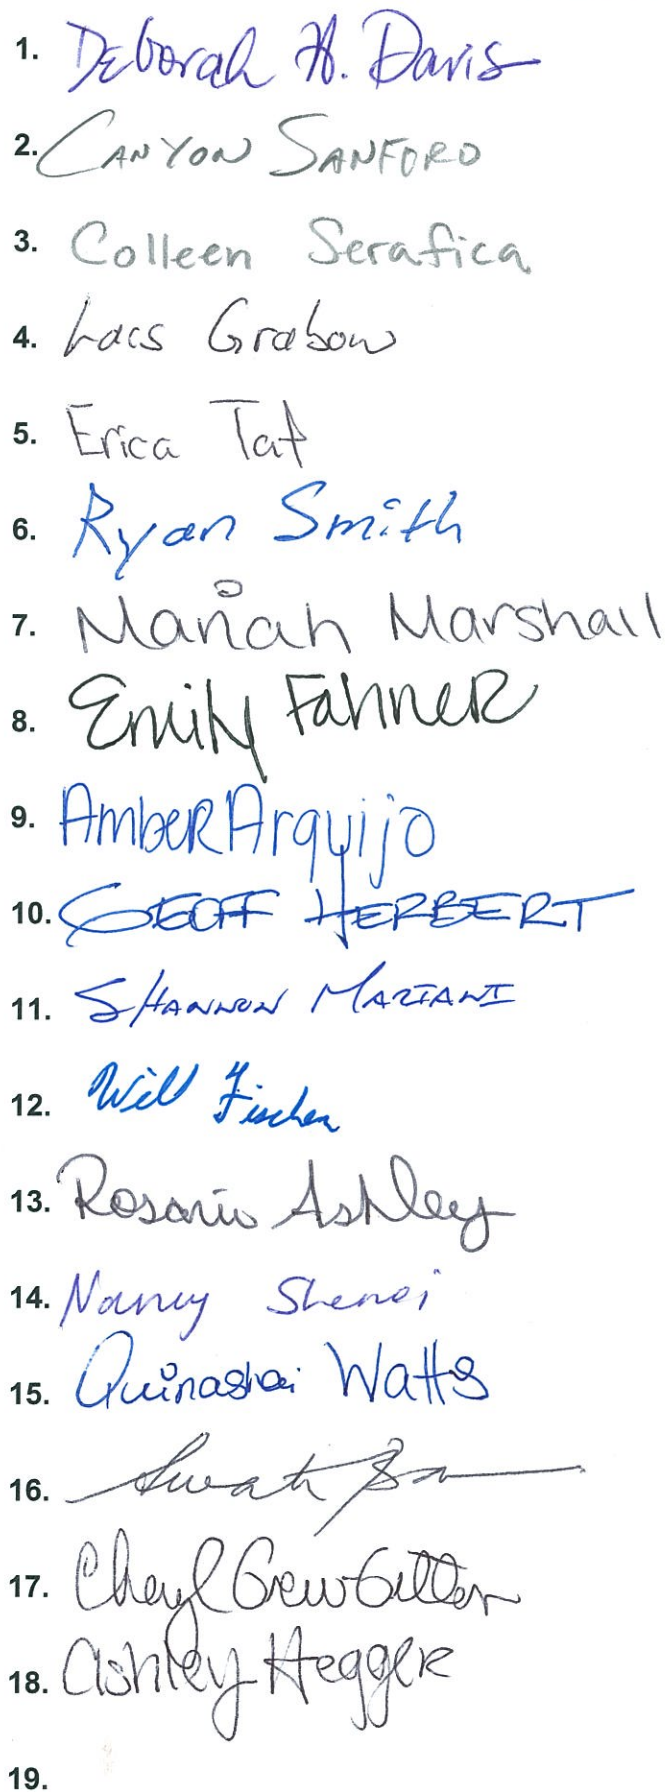 1. Deborah H. Davis
2. CANYON SANFORD
3. Colleen Serafica
4. Lacs Grabow
5. Erica Tat
6. Ryan Smith
7. Mariah Marshall
8. Emily Fahner
9. Amber Arquijo
10. GEOFF HERBERT
11. SHANNON MARIANI
12. Will Fischer
13. Rosario Ashley
14. Nancy Shenoi
15. Quinashai Watts
16.
17. Cheryl
18. Ashley Hegger
19.